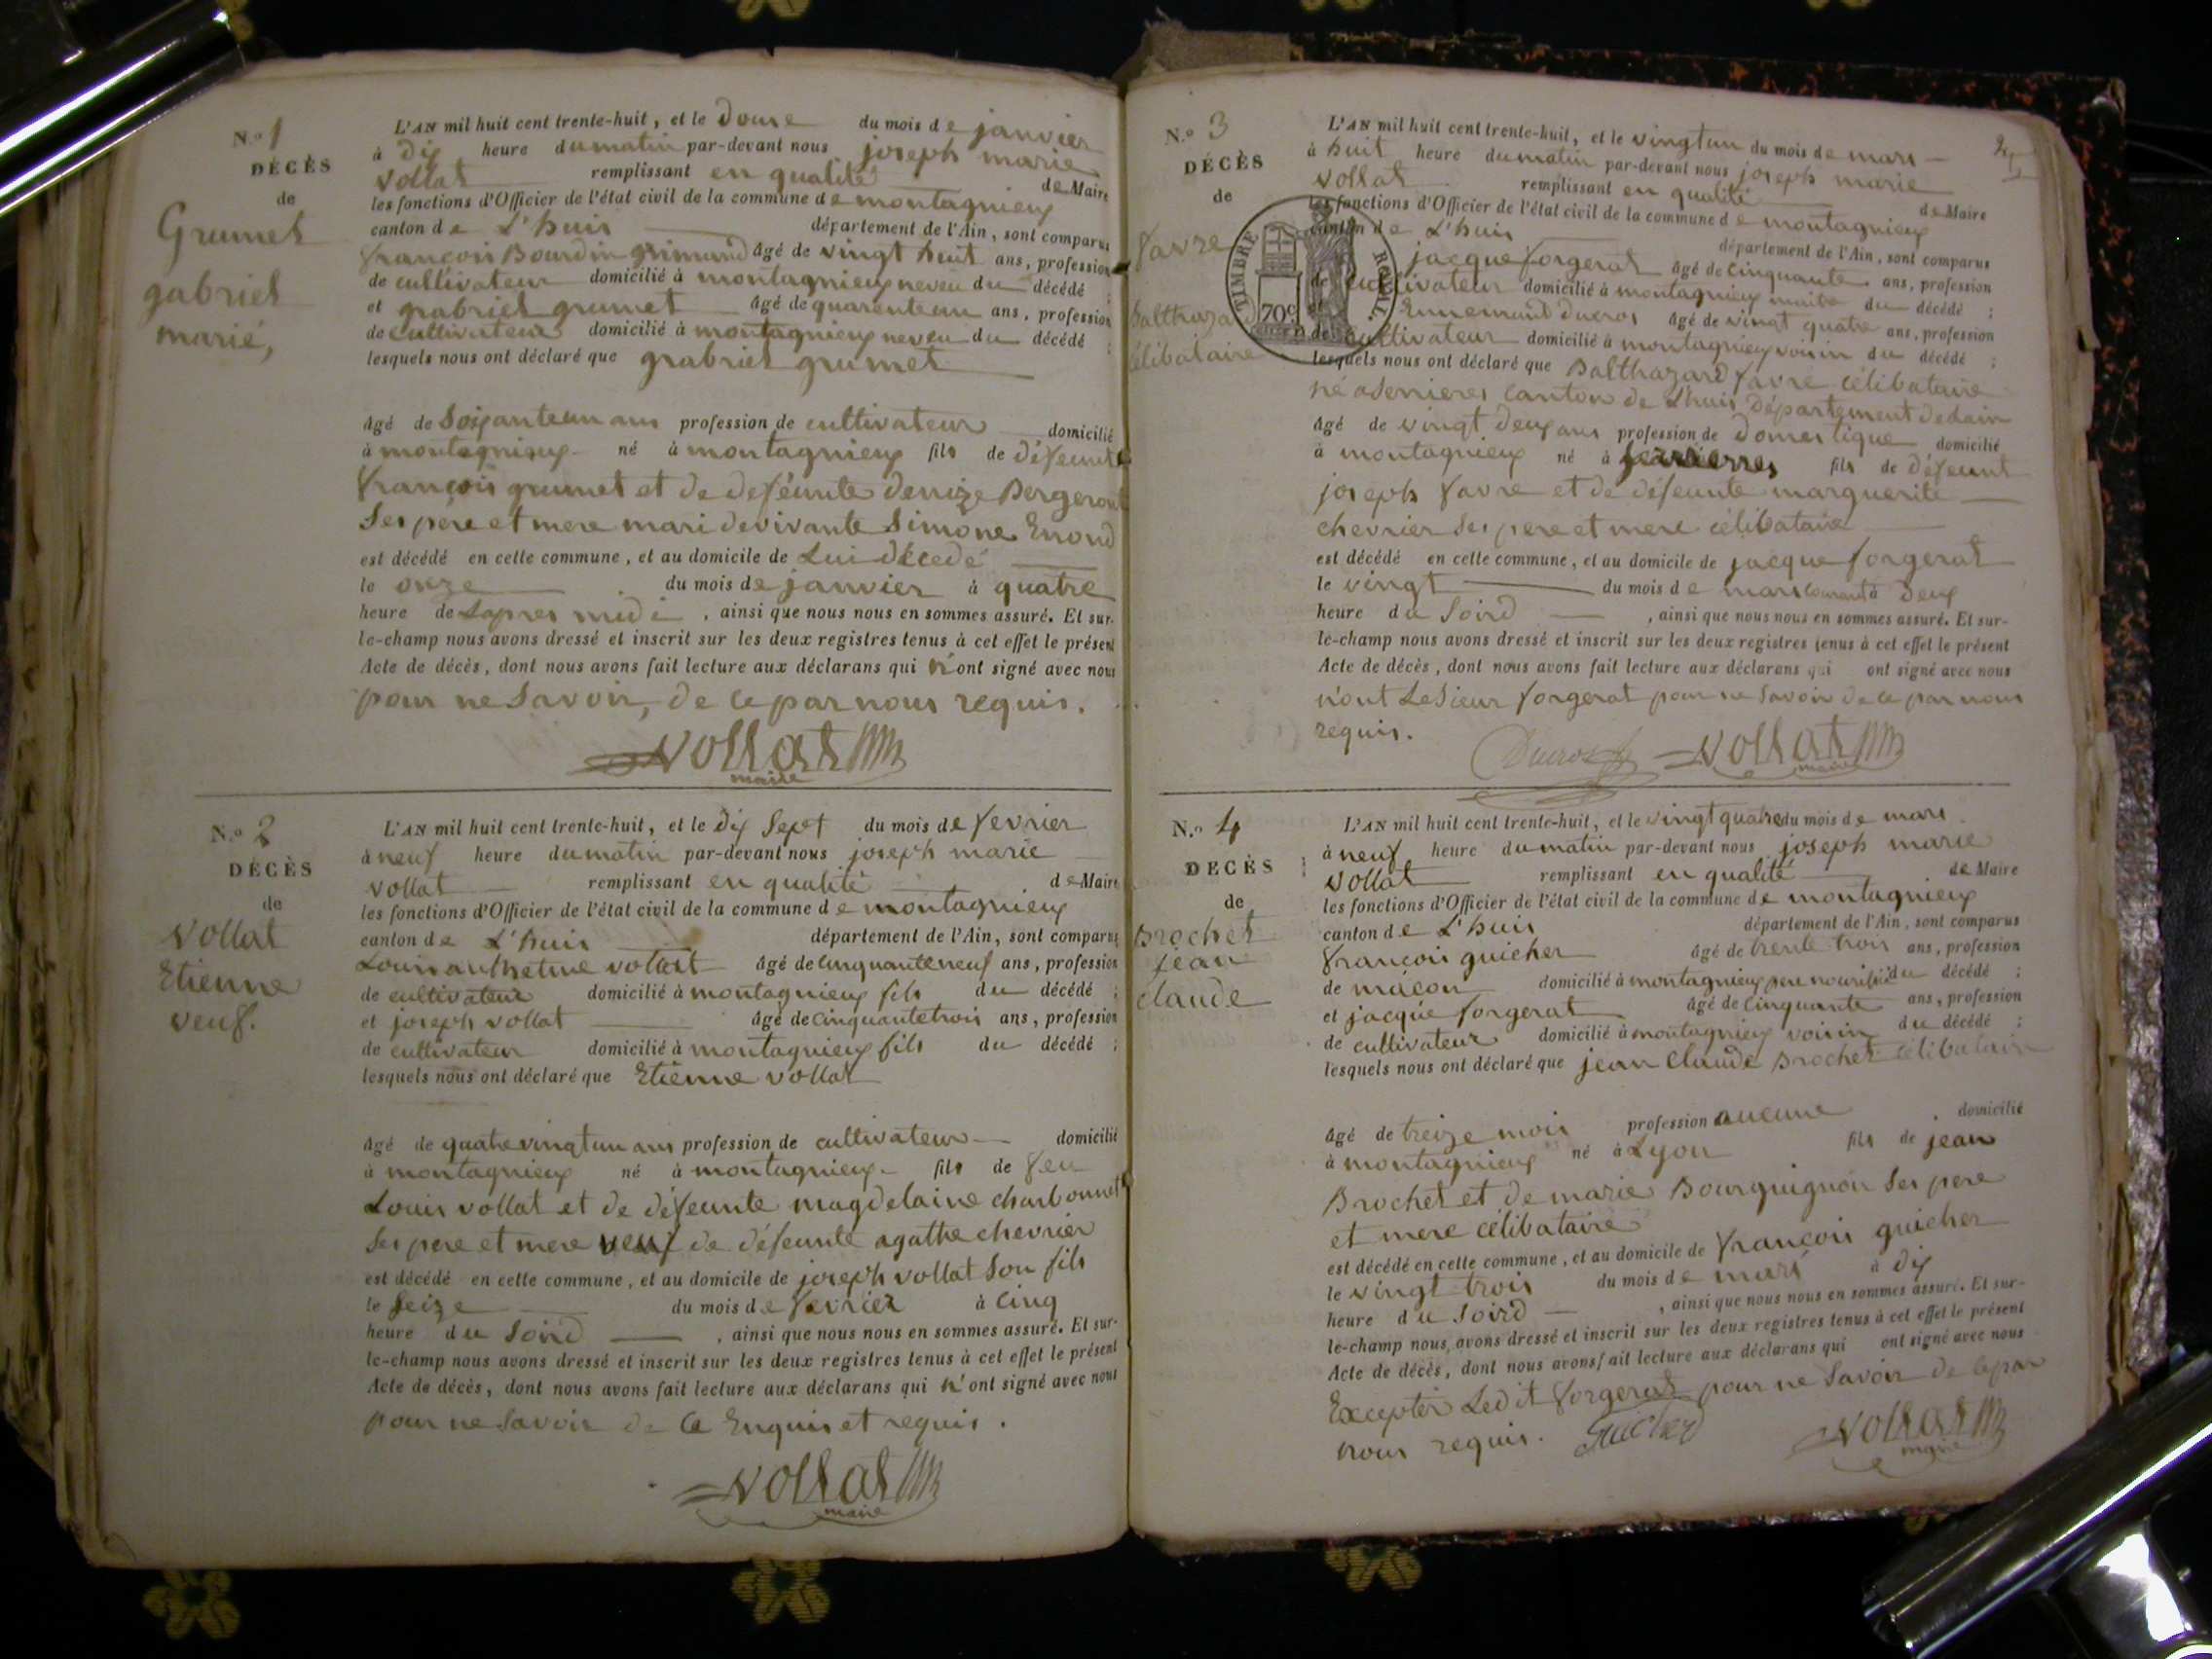 N.º 1
DÉCÈS
de
Grumet
gabriel
marié,
L'AN mil huit cent trente-huit, et le douse du mois de janvier
à dix heure du matin par-devant nous joseph marie
vollat remplissant en qualité de Maire
les fonctions d'Officier de l'état civil de la commune de montagnieux
canton de L'huis département de l'Ain, sont comparus
françois Bourdin grimaud âgé de vingt huit ans, profession
de cultivateur domicilié à montagnieux neveu du décédé ;
et grabriel grumet âgé de quarenteun ans, profession
de cultivateur domicilié à montagnieux neveu du décédé ;
lesquels nous ont déclaré que grabriel grumet
âgé de Soixanteun ans profession de cultivateur domicilié
à montagnieux né à montagnieux fils de défeunt
françois grumet et de deféunte denize Bergeront
Ses père et mere mari devivante Simone Enond
est décédé en cette commune, et au domicile de Lui décedé
le onze du mois de janvier à quatre
heure de Lapres midi, ainsi que nous nous en sommes assuré. Et sur-
le-champ nous avons dressé et inscrit sur les deux registres tenus à cet effet le présent
Acte de décès, dont nous avons fait lecture aux déclarans qui n'ont signé avec nous
pour ne Savoir, de ce par nous requis.
vollat
maire
N.º 2
DÉCÈS
de
Vollat
Etienne
veuf.
L'AN mil huit cent trente-huit, et le dix Sept du mois de fevrier
à neuf heure du matin par-devant nous joseph marie
vollat remplissant en qualité de Maire
les fonctions d'Officier de l'état civil de la commune de montagnieux
canton de L'huis département de l'Ain, sont comparus
Louis anthelme vollat âgé de cinquanteneuf ans, profession
de cultivateur domicilié à montagnieux fils du décédé ;
et joseph vollat âgé de cinquantetrois ans, profession
de cultivateur domicilié à montagnieux fils du décédé ;
lesquels nous ont déclaré que Etienne vollat
âgé de quatrevingtun ans profession de cultivateur domicilié
à montagnieux né à montagnieux fils de feu
Louis vollat et de défeunte magdelaine charbonnet
Ses pere et mere veuf de défeunte agathe chevrier
est décédé en cette commune, et au domicile de joseph vollat Son fils
le Seize du mois de fevrier à cinq
heure du Soird, ainsi que nous nous en sommes assuré. Et sur-
le-champ nous avons dressé et inscrit sur les deux registres tenus à cet effet le présent
Acte de décès, dont nous avons fait lecture aux déclarans qui n'ont signé avec nous
pour ne Savoir de ce Enquis et requis.
vollat
maire
N.º 3
DÉCÈS
de
favre
Balthazard
célibataire
TIMBRE ROYAL.
70c
L'AN mil huit cent trente-huit, et le vingtun du mois de mars
à huit heure du matin par-devant nous joseph marie
vollat remplissant en qualité de Maire
les fonctions d'Officier de l'état civil de la commune de montagnieux
canton de L'huis département de l'Ain, sont comparus
jacque forgerat âgé de cinquante ans, profession
de cultivateur domicilié à montagnieux maitre du décédé ;
et Ennemand ducros âgé de vingt quatre ans, profession
de cultivateur domicilié à montagnieux voisin du décédé ;
lesquels nous ont déclaré que Balthazard favre célibataire
né a Serrieres canton de Lhuis département de Lain
âgé de vingt deux ans profession de domestique domicilié
à montagnieux né à Serrierres fils de défeunt
joseph favre et de défeunte marguerite
chevrier Ses pere et mere célibataire
est décédé en cette commune, et au domicile de jacque forgerat
le vingt du mois de mars courant à deux
heure du Soird, ainsi que nous nous en sommes assuré. Et sur-
le-champ nous avons dressé et inscrit sur les deux registres tenus à cet effet le présent
Acte de décès, dont nous avons fait lecture aux déclarans qui ont signé avec nous
n'ont Le Sieur forgerat pour ne Savoir de ce par nous
requis.
Ducros vollat
maire
N.º 4
DÉCÈS
de
Brochet
jean
claude
L'AN mil huit cent trente-huit, et le vingt quatre du mois de mars
à neuf heure du matin par-devant nous joseph marie
vollat remplissant en qualité de Maire
les fonctions d'Officier de l'état civil de la commune de montagnieux
canton de L'huis département de l'Ain, sont comparus
françois guicher âgé de trente trois ans, profession
de maçon domicilié à montagnieux pere nourissié du décédé ;
et jacque forgerat âgé de cinquante ans, profession
de cultivateur domicilié à montagnieux voisin du décédé ;
lesquels nous ont déclaré que jean claude Brochet célibataire
âgé de treize mois profession aucune, domicilié
à montagnieux né à Lyon fils de jean
Brochet et de marie Bourguignon Ses pere
et mere célibataire
est décédé en cette commune, et au domicile de françois guicher
le vingt trois du mois de mars à dix
heure du Soird, ainsi que nous nous en sommes assuré. Et sur-
le-champ nous avons dressé et inscrit sur les deux registres tenus à cet effet le présent
Acte de décès, dont nous avons fait lecture aux déclarans qui ont signé avec nous
Excepter Ledit forgerat pour ne Savoir de ce par
nous requis. Guicherd vollat
maire